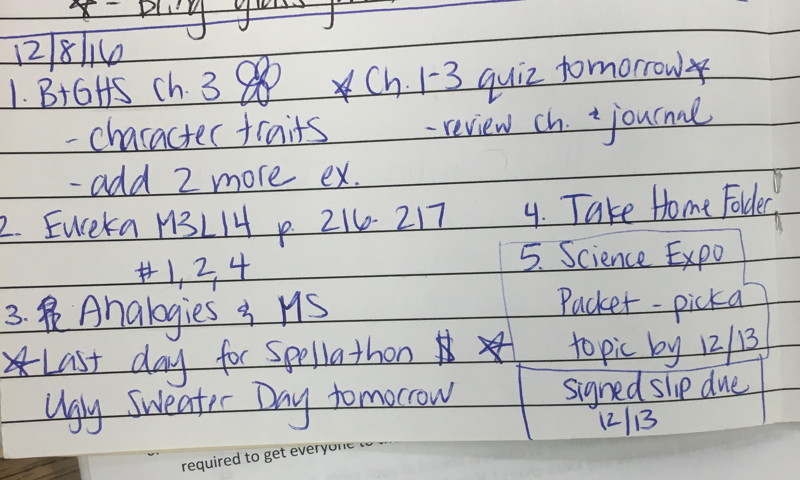 12/8/16
1. B+GHS Ch. 3 * Ch. 1-3 quiz tomorrow *
- character traits - review ch. + journal
- add 2 more ex.
2. Eureka M3L14 p. 216-217
#1, 2, 4
3. Analogies & MS
* Last day for Spellathon $ *
Ugly Sweater Day tomorrow
4. Take Home Folder
5. Science Expo
Packet - pick a
topic by 12/13
Signed slip due
12/13
required to get everyone to